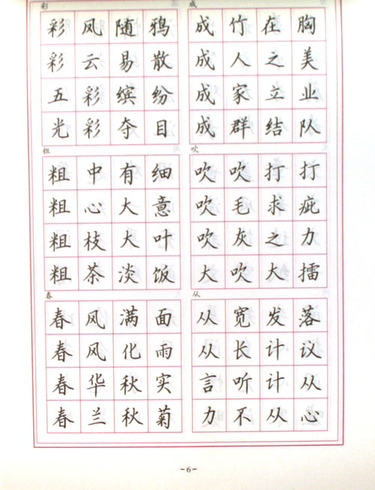 彩
彩凤随鸦
彩云易散
五彩缤纷
光彩夺目
成
成竹在胸
成人之美
成家立业
成群结队
粗
粗中有细
粗心大意
粗枝大叶
粗茶淡饭
吹
吹吹打打
吹毛求疵
吹灰之力
大吹大擂
春
春风满面
春风化雨
春华秋实
春兰秋菊
从
从宽发落
从长计议
言听计从
力不从心
-6-